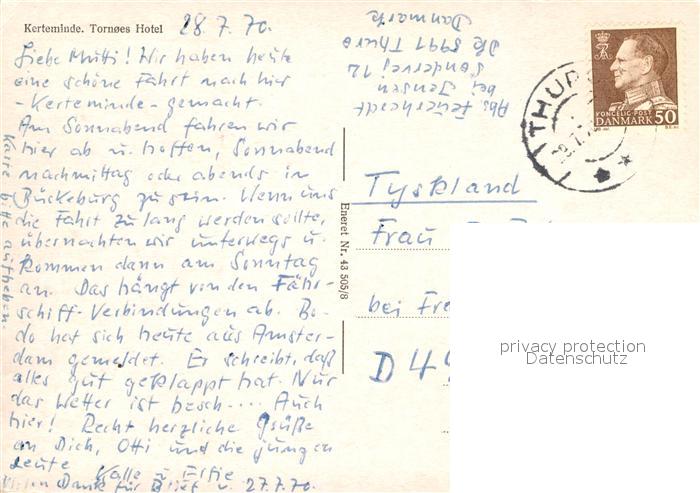 Kerteminde. Tornøes Hotel
28.7.70.
Liebe Mutti! Wir haben heute
eine schöne Fahrt nach hier
- Kerteminde - gemacht.
Am Sonnabend fahren wir
hier ab u. hoffen, Sonnabend
nachmittag oder abends in
Bückeburg zu sein. Wenn uns
die Fahrt zu lang werden sollte,
übernachten wir unterwegs u.
kommen dann am Sonntag
an. Das hängt von den Fähr-
schiff-Verbindungen ab. Bo-
do hat sich heute aus Amster-
dam gemeldet. Er schreibt, daß
alles gut geklappt hat. Nur
das Wetter ist besch.... Auch
hier! Recht herzliche Grüße
an Dich, Otti und die jungen
Leute
Kalle u.
Vielen Dank für Brief v. 27.7.70.
Karte bitte aufheben.
Abs. Feuerherdt
bei Jensen
Søndervej 12
DK 5991 Thurø
Danmark
Eneret Nr. 43 505/8
FONCELIC-POST
DANMARK 50
THURØ
Tyskland
Frau
bei Fre
D 49
privacy protection
Datenschutz